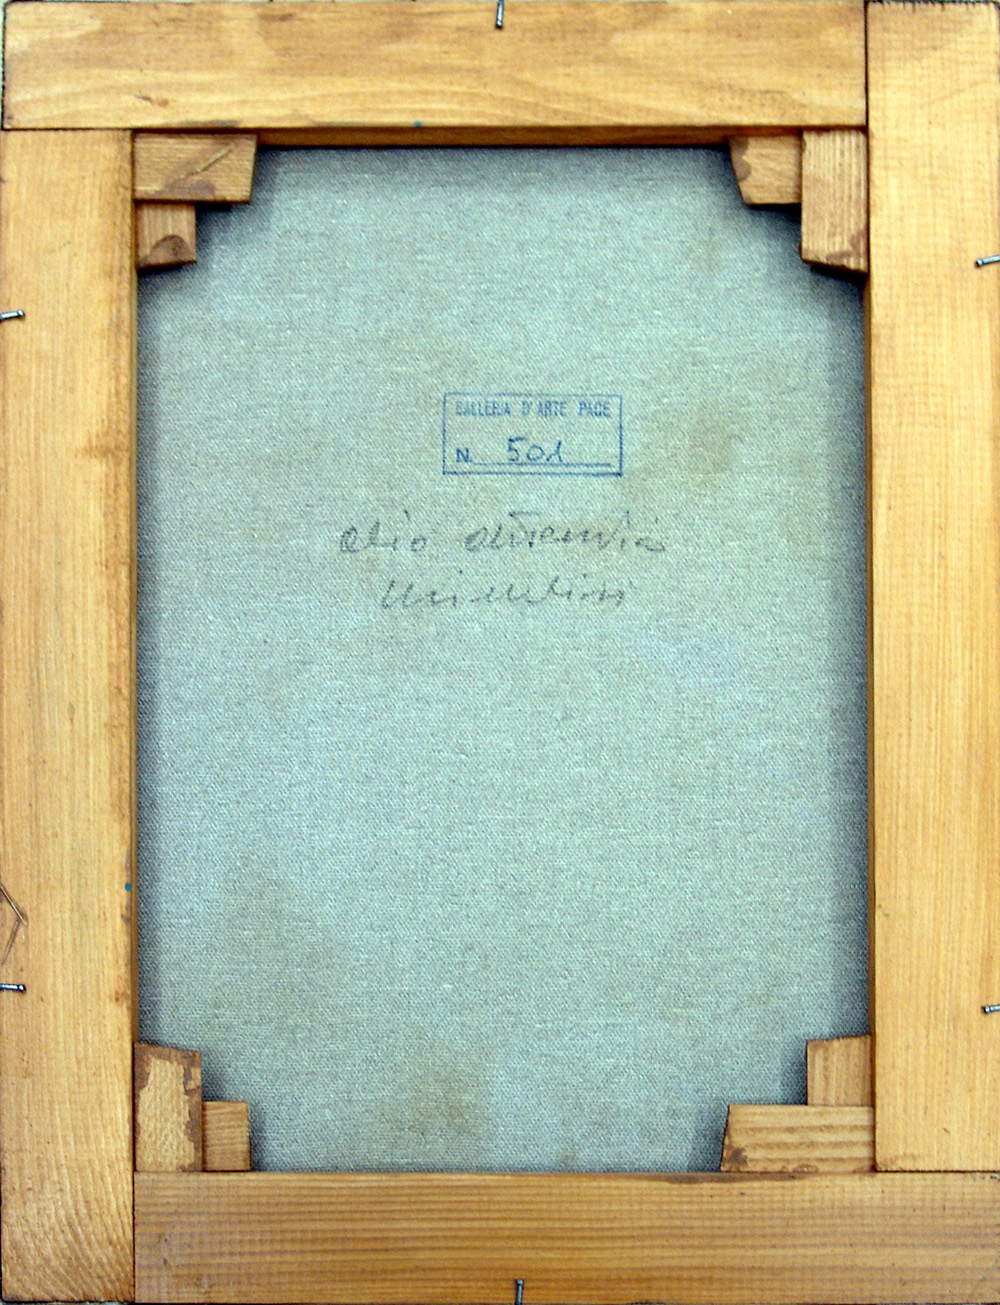 GALLERIA D'ARTE PACE
N. 501
olio autentico